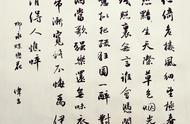 佇倚危樓風細細望極春
愁黯黯生天際草色烟光
殘照裏無言誰會憑闌
意擬把疏狂圖一醉對酒
當歌強樂還無味衣
帶漸寬終不悔為伊
消得人憔悴
柳永蝶戀花